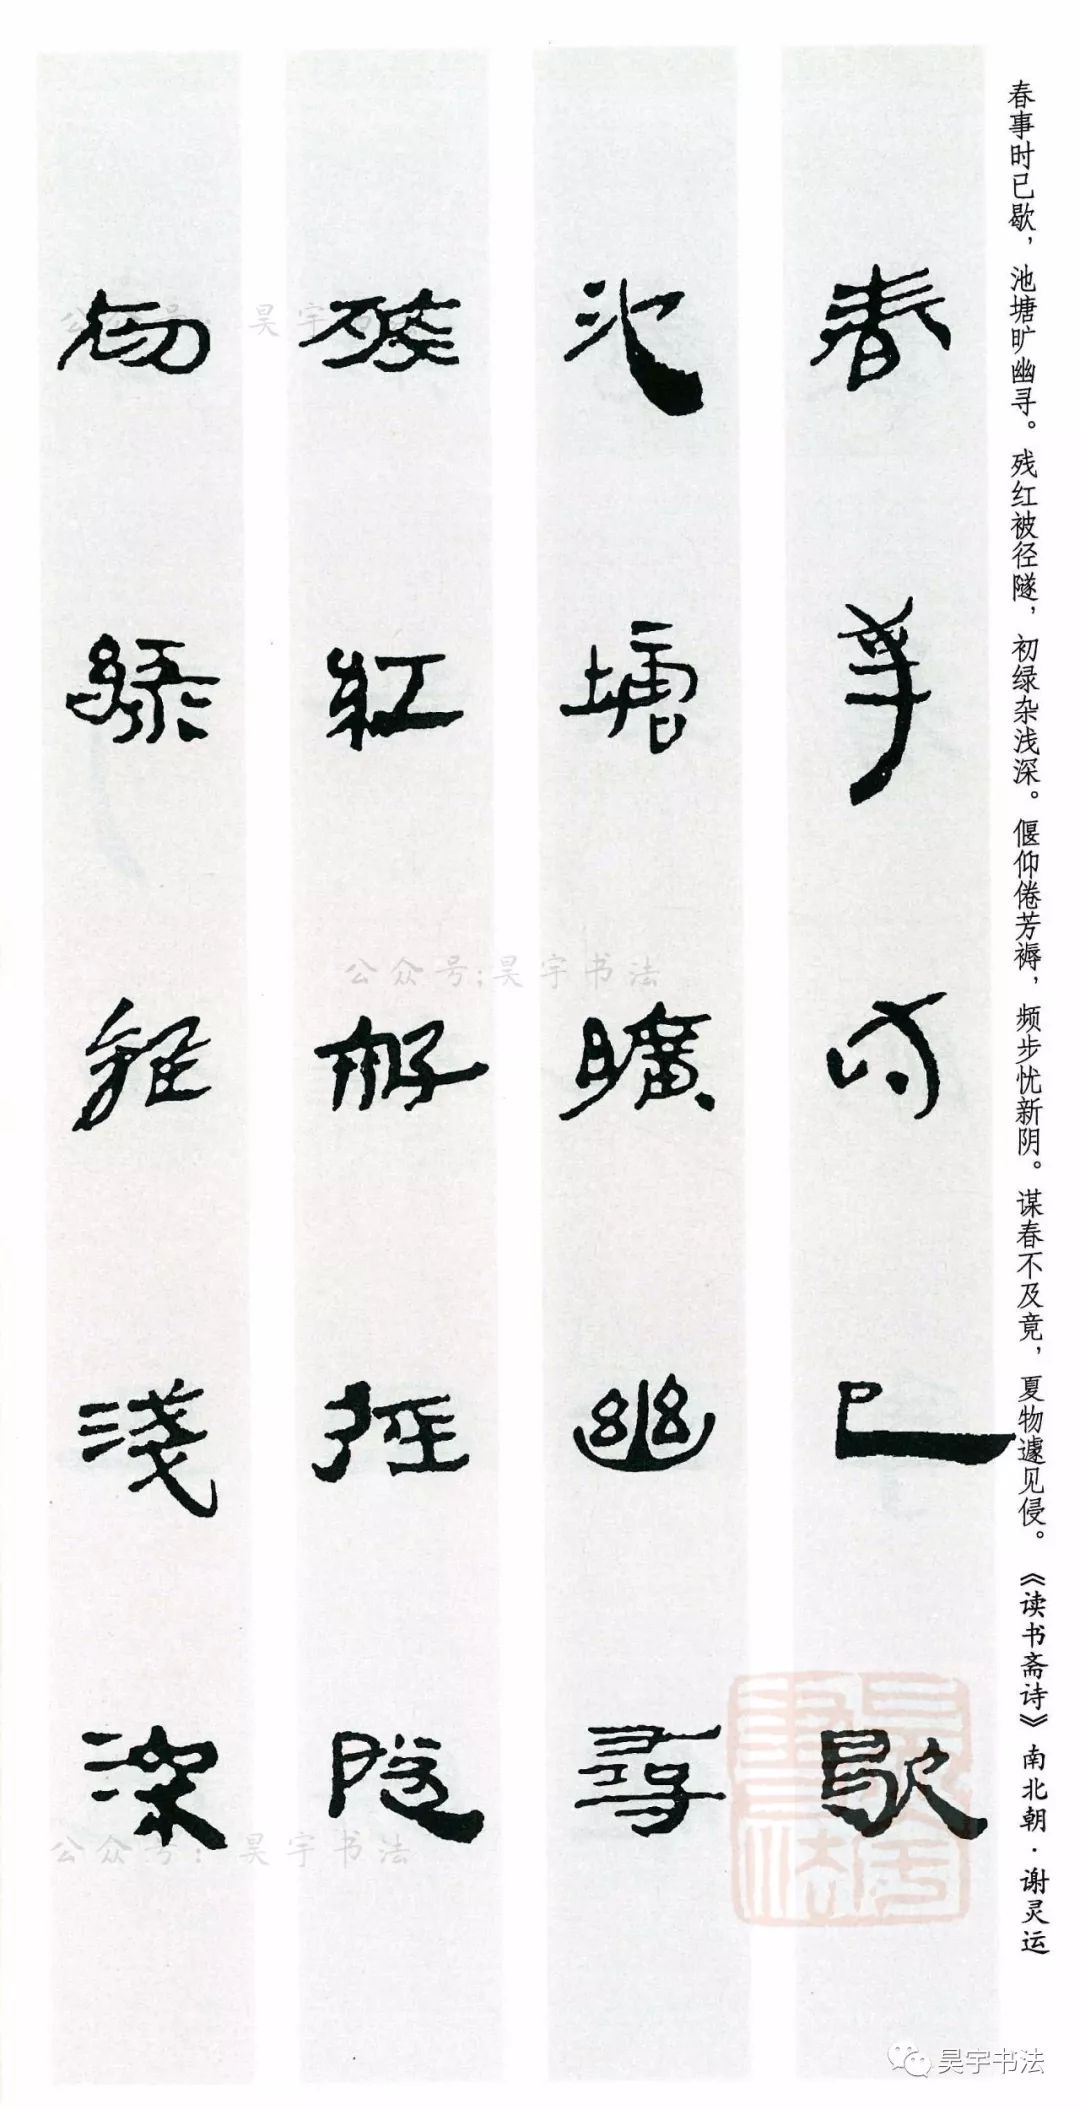 春事时已歇，池塘旷幽寻。残红被径隧，初绿杂浅深。偃仰倦芳褥，频步忧新阴。谋春不及竟，夏物遽见侵。《读书斋诗》南北朝·谢灵运
春事时已歇
池塘曠幽尋
殘紅被徑隧
初緑雜淺深
公众号:昊宇书法
公众号:昊宇书法
公众号:昊宇书法
昊宇书法